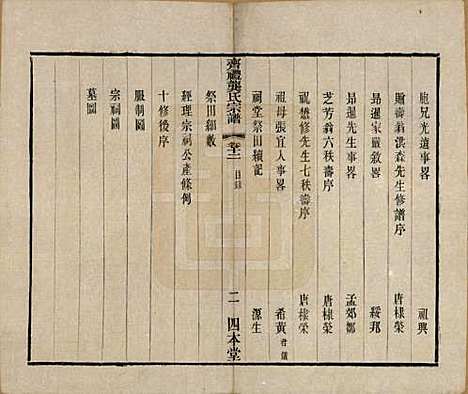 胞兄光遠事畧　祖興
賙壽翁洪森先生修譜序　唐棣榮
昂暹家嚴敘畧　綬邦
昂暹先生事畧　孟郊鄒
芝芳翁六秩壽序　唐棣榮
祝懋修先生七秩壽序　唐棣榮
祖母張宜人事畧　希黃
祠堂祭田續記　源生
齊禮龔氏宗譜　卷十二　目錄　二　四本堂
祭田總數
經理宗祠公產條例
十修後序
服制圖
宗祠圖
墓圖